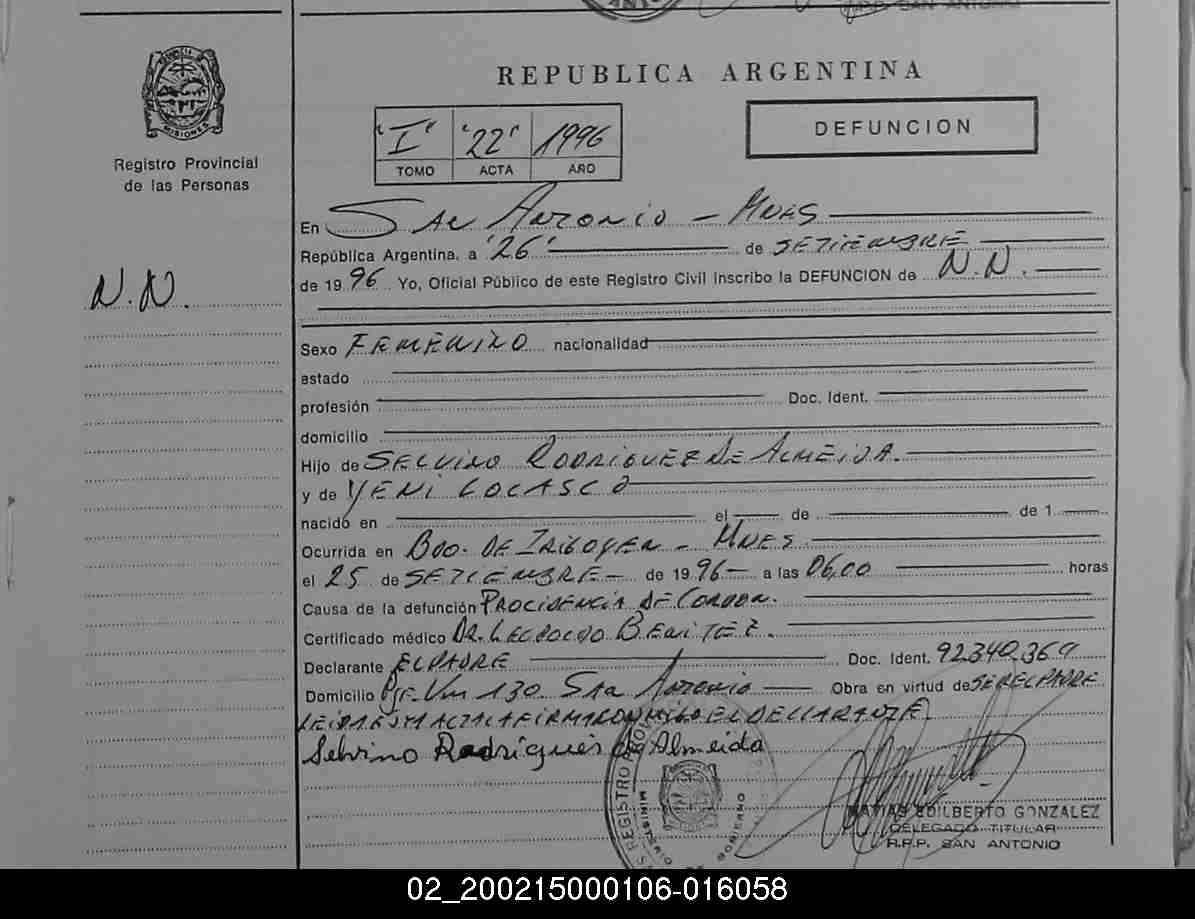 R.P.P. SAN ANTONIO
MISIONES
Registro Provincial
de las Personas
N.N.
REPUBLICA ARGENTINA
"I" "22" 1996
TOMO ACTA AÑO
DEFUNCION
En San Antonio - Mnes
República Argentina, a "26" de SETIEMBRE
de 1996 Yo, Oficial Público de este Registro Civil inscribo la DEFUNCION de N.N.
Sexo FEMENINO nacionalidad
estado
profesión Doc. Ident.
domicilio
Hijo de SELVINO RODRIGUES DE ALMEIDA.
y de YENI LOCASCO
nacido en el de de 1
Ocurrida en Bdo. DE IRIGOYEN - MNES
el 25 de SETIEMBRE - de 1996 - a las 06,00 horas
Causa de la defunción PROCIDENCIA DE CORDON.
Certificado médico DR. LEOPOLDO BENITEZ.
Declarante EL PADRE Doc. Ident. 92.340.369
Domicilio Pje. Km 130 San Antonio Obra en virtud de SER EL PADRE
LEIDA ESTA ACTA LA FIRMA CONMIGO EL DECLARANTE
Selvino Rodrigues de Almeida
MATIAS EDILBERTO GONZALEZ
DELEGADO TITULAR
R.P.P. SAN ANTONIO
02_200215000106-016058